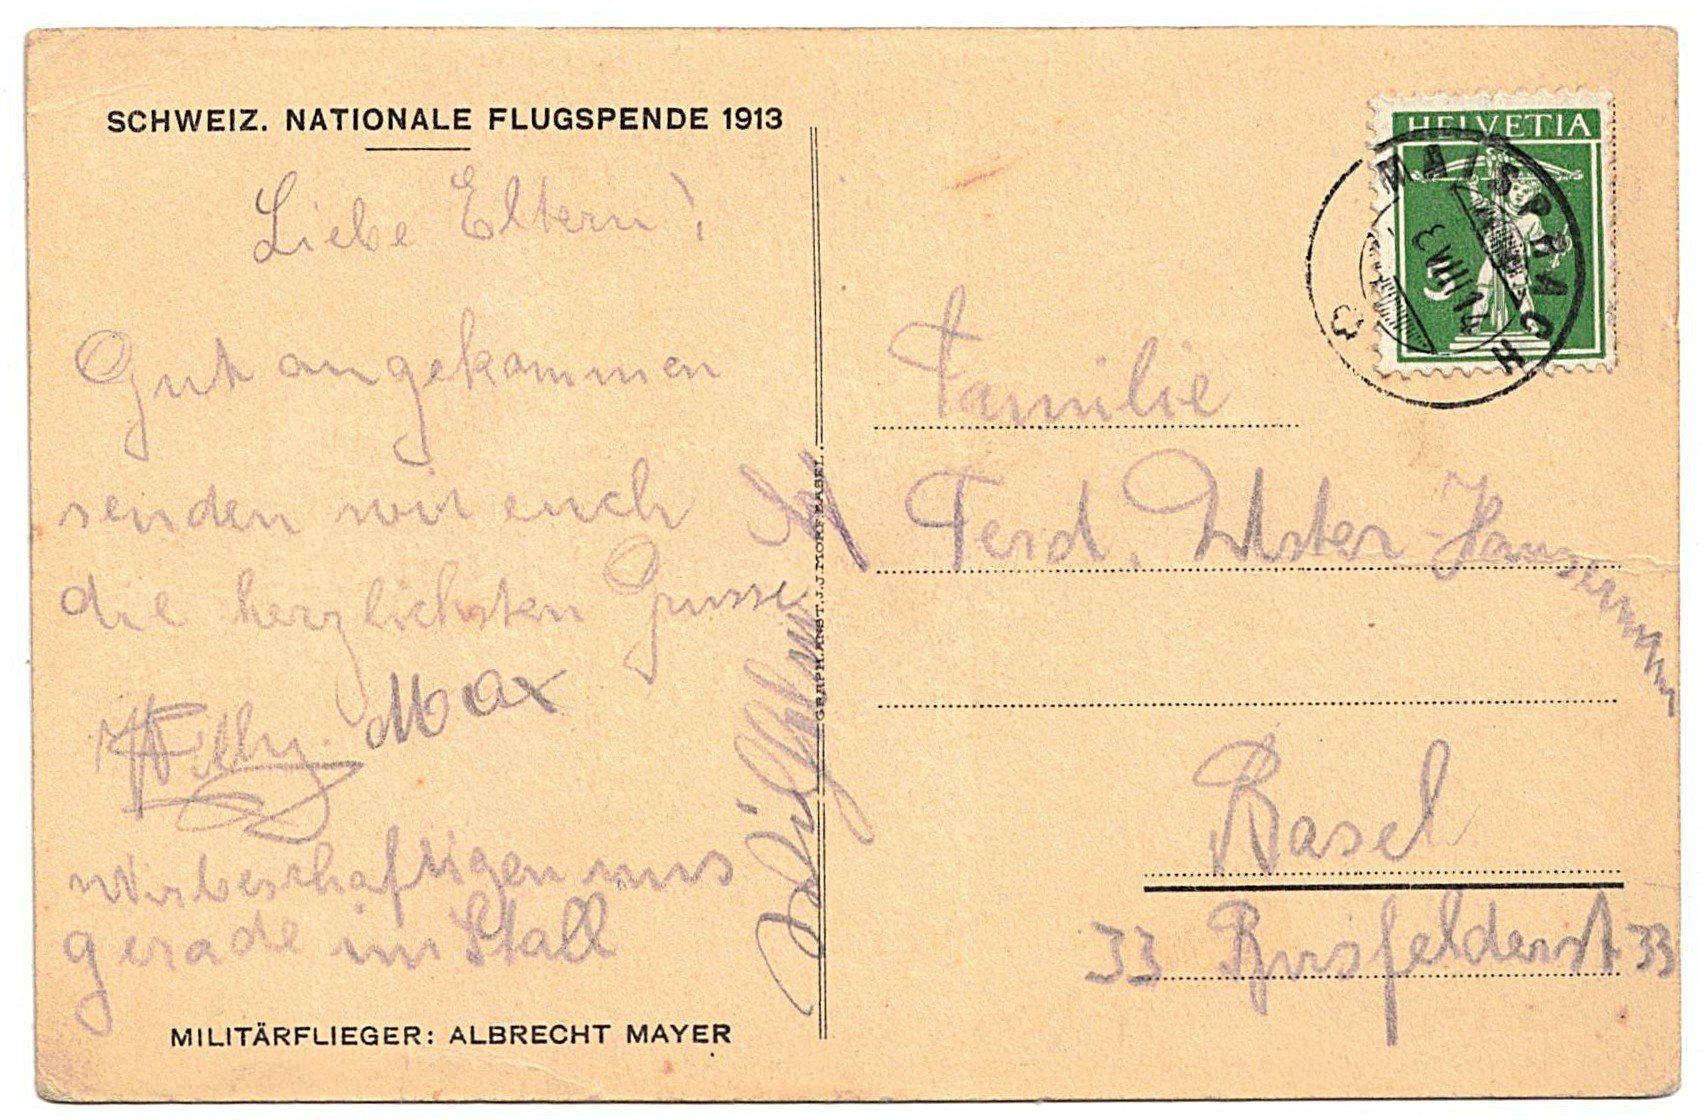 SCHWEIZ. NATIONALE FLUGSPENDE 1913
Liebe Eltern!
Gut angekommen
senden wir euch
die herzlichsten Grüsse
Willy. Max
Wir beschäftigen uns
gerade im Stall
MILITÄRFLIEGER: ALBRECHT MAYER
GRAPH. ANST. J. J. MORF BASEL.
HELVETIA
5
MAISPRACH
Familie
Ferd. Uster-Hausermann
Basel
33 Birsfelderst 33